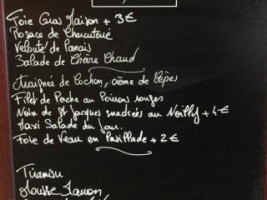 Foie Gras Maison + 3€
Rosace de Charcuterie
Velouté de Panais
Salade de Chèvre Chaud
Araignée de Cochon, crème de Cèpes
Filet de Poche au Poivrons rouges
Noix de St Jacques snackées au Noilly + 4€
Maxi Salade du Jour.
Foie de Veau en Persillade + 2€
Tiramisu
Mousse